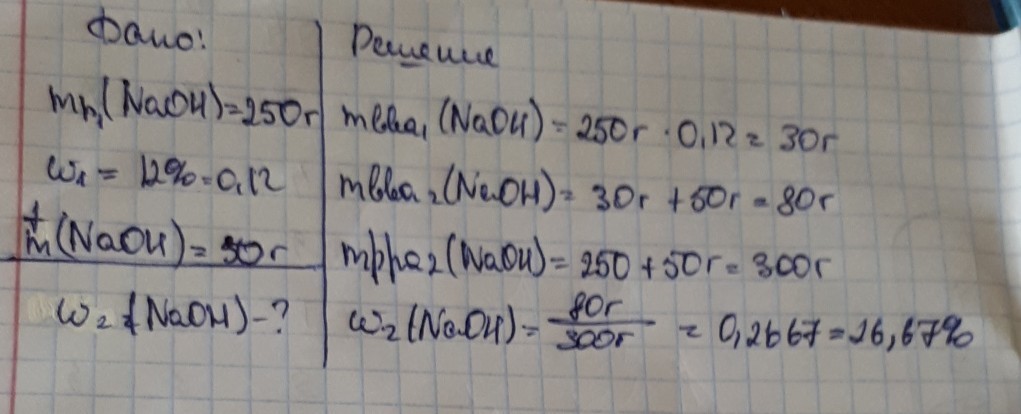 Дано:
mр₁(NaOH)=250г
ω₁ = 12%=0,12
+
m(NaOH)= 50г
ω₂ (NaOH)-?
Решение
mвва₁ (NaOH) = 250г · 0,12 = 30г
mвва₂ (NaOH) = 30г + 50г = 80г
mрра₂ (NaOH) = 250 + 50г = 300г
ω₂ (NaOH) = 80г / 300г = 0,2667 = 26,67%